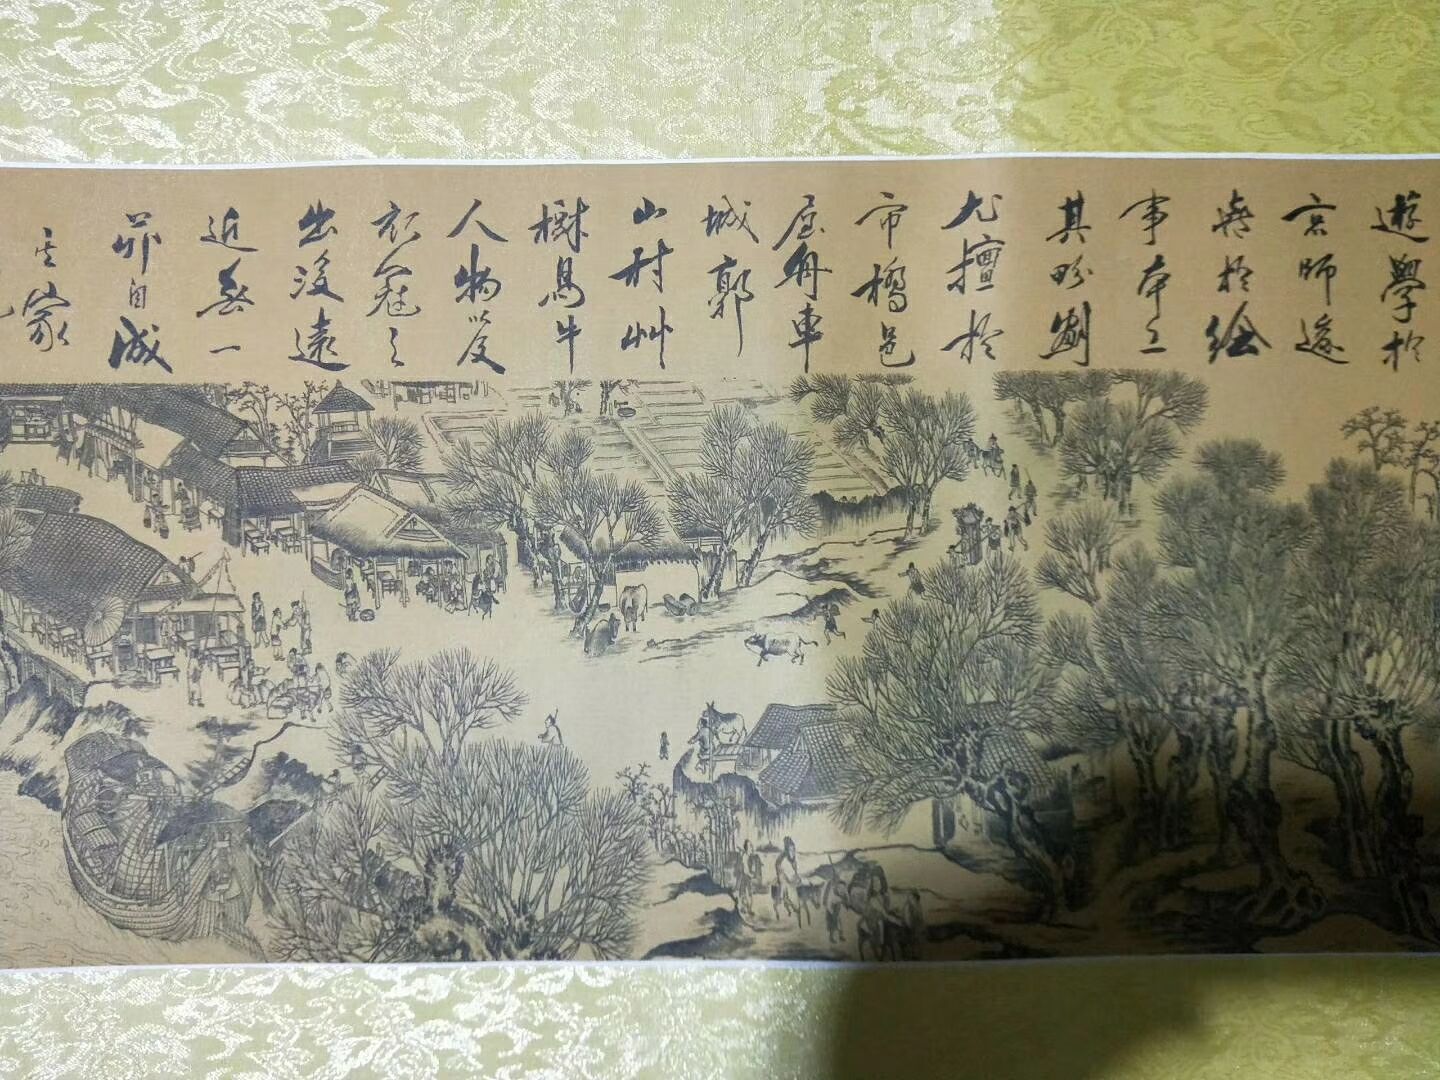 遊學於
京師後
喜於繪
事本工
其界劃
尤擅於
市橋邑
屋舟車
城郭
山村艸
樹馬牛
人物以及
衣冠之
出沒遠
近無一
非自成
家